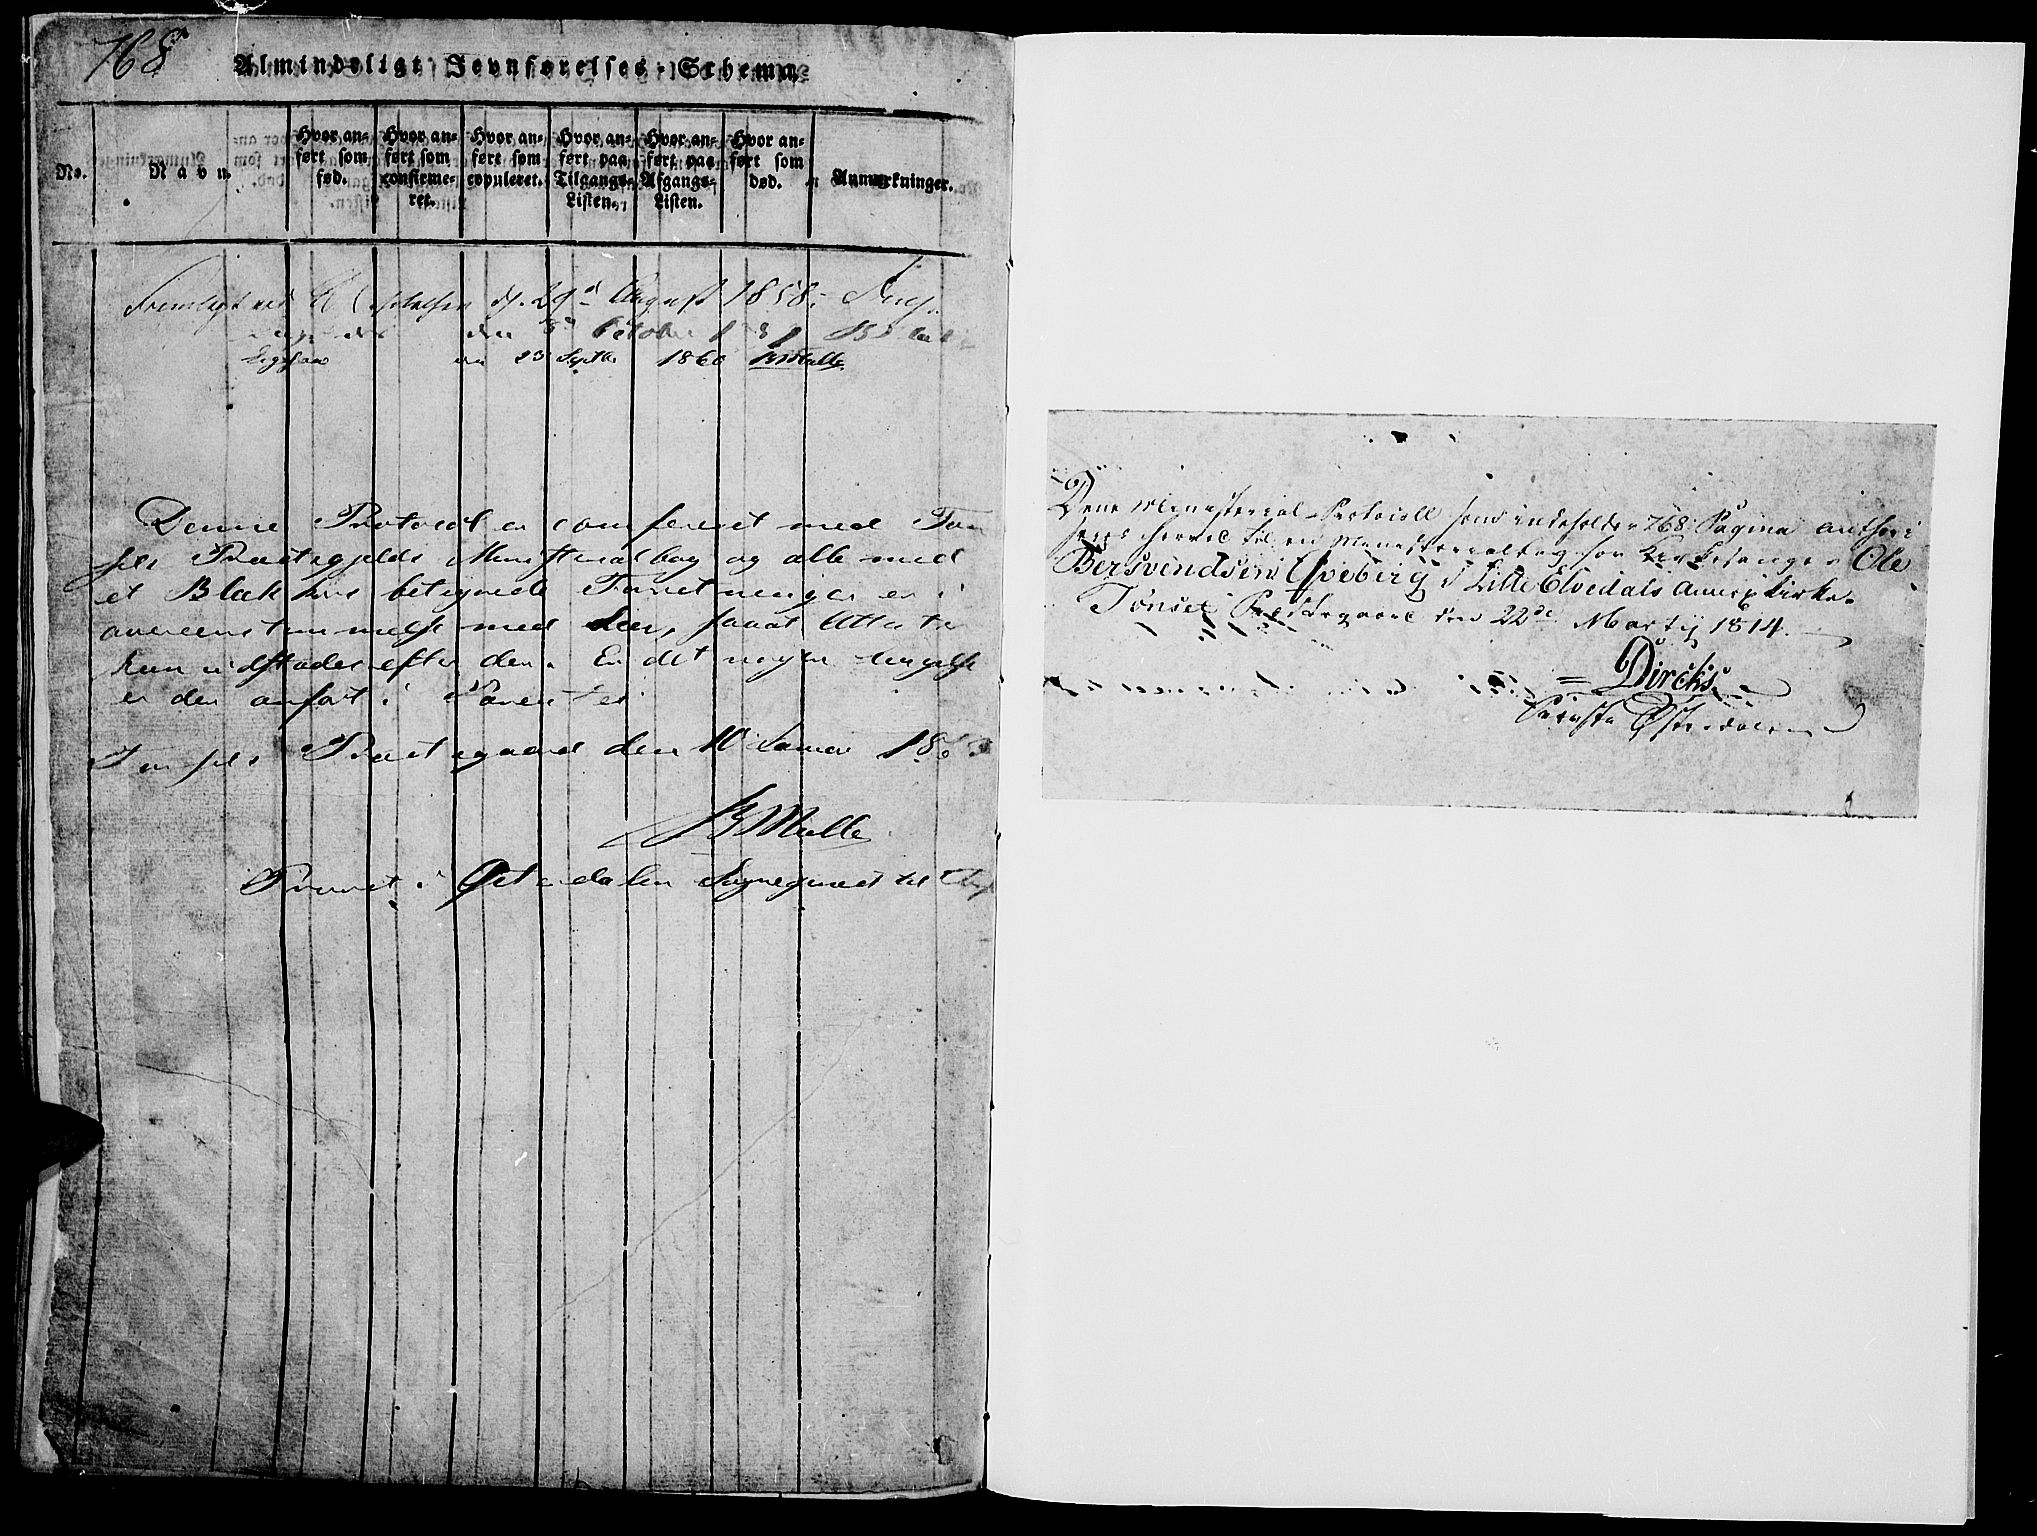 768
Almindeligt Jevnførelses-Schema
No.
Navn.
Hvor an-
ført som
fød.
Hvor an-
ført som
confirme-
ret.
Hvor an-
ført som
copuleret.
Hvor an-
ført paa
Tilgangs-
Listen.
Hvor an-
ført paa
Afgangs-
Listen.
Hvor an-
ført som
død.
Anmærkninger.
Fremlagt ved d. 29d August 1858:
den October
Ligesaa 23 Septbr 1860
Denne Protocol er confereret med Tøn
sets Præstegjelds Ministerialbog og alle med
et Blæk betegnede Forretninger er i
overeensstemmelse med den, saaat Attester
kan udstædes efter den. Er det nogen
er den anført i
Tønsets Præstegaard den 10 Januar 186
Provst i Østerdalen Sognepræst til
Dene Ministerial-Protocoll som indeholder 768 Pagina Authori
seres herved til en Ministerialbog for Kirkesanger Ole
Bersvendsen Qveberg i Lille Elvedals Annex Kirke.
Tønset Præstegaard den 22de Martij 1814.
= Dircks
Østerdalen